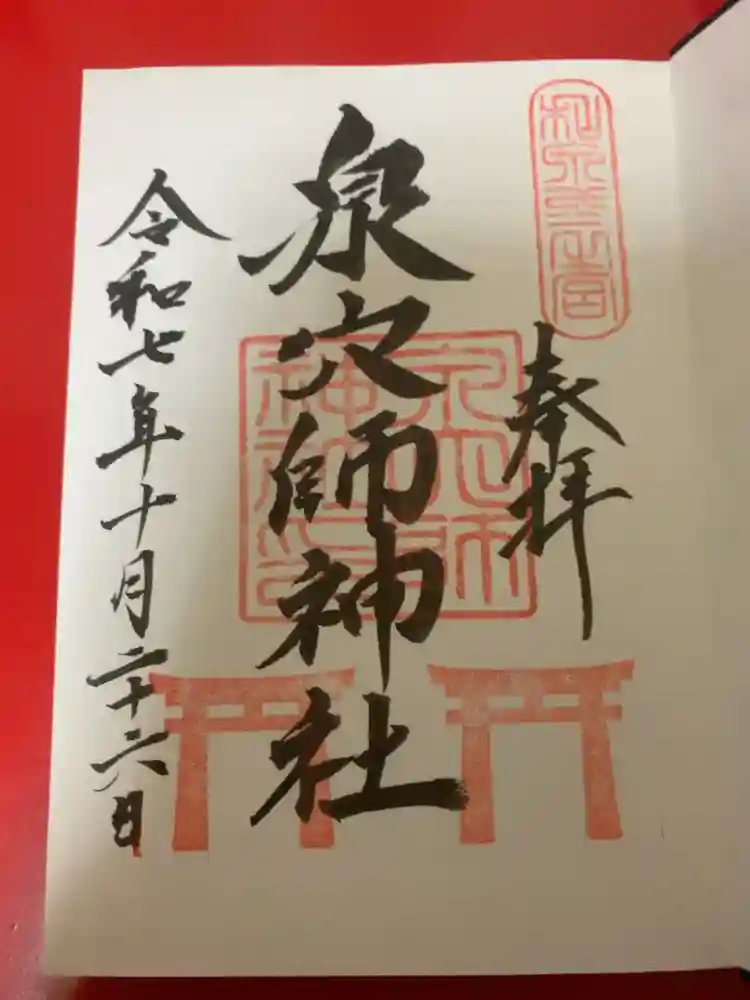 和泉二之宮
奉拝
泉穴師神社
穴師
神社印
令和七年十月二十六日